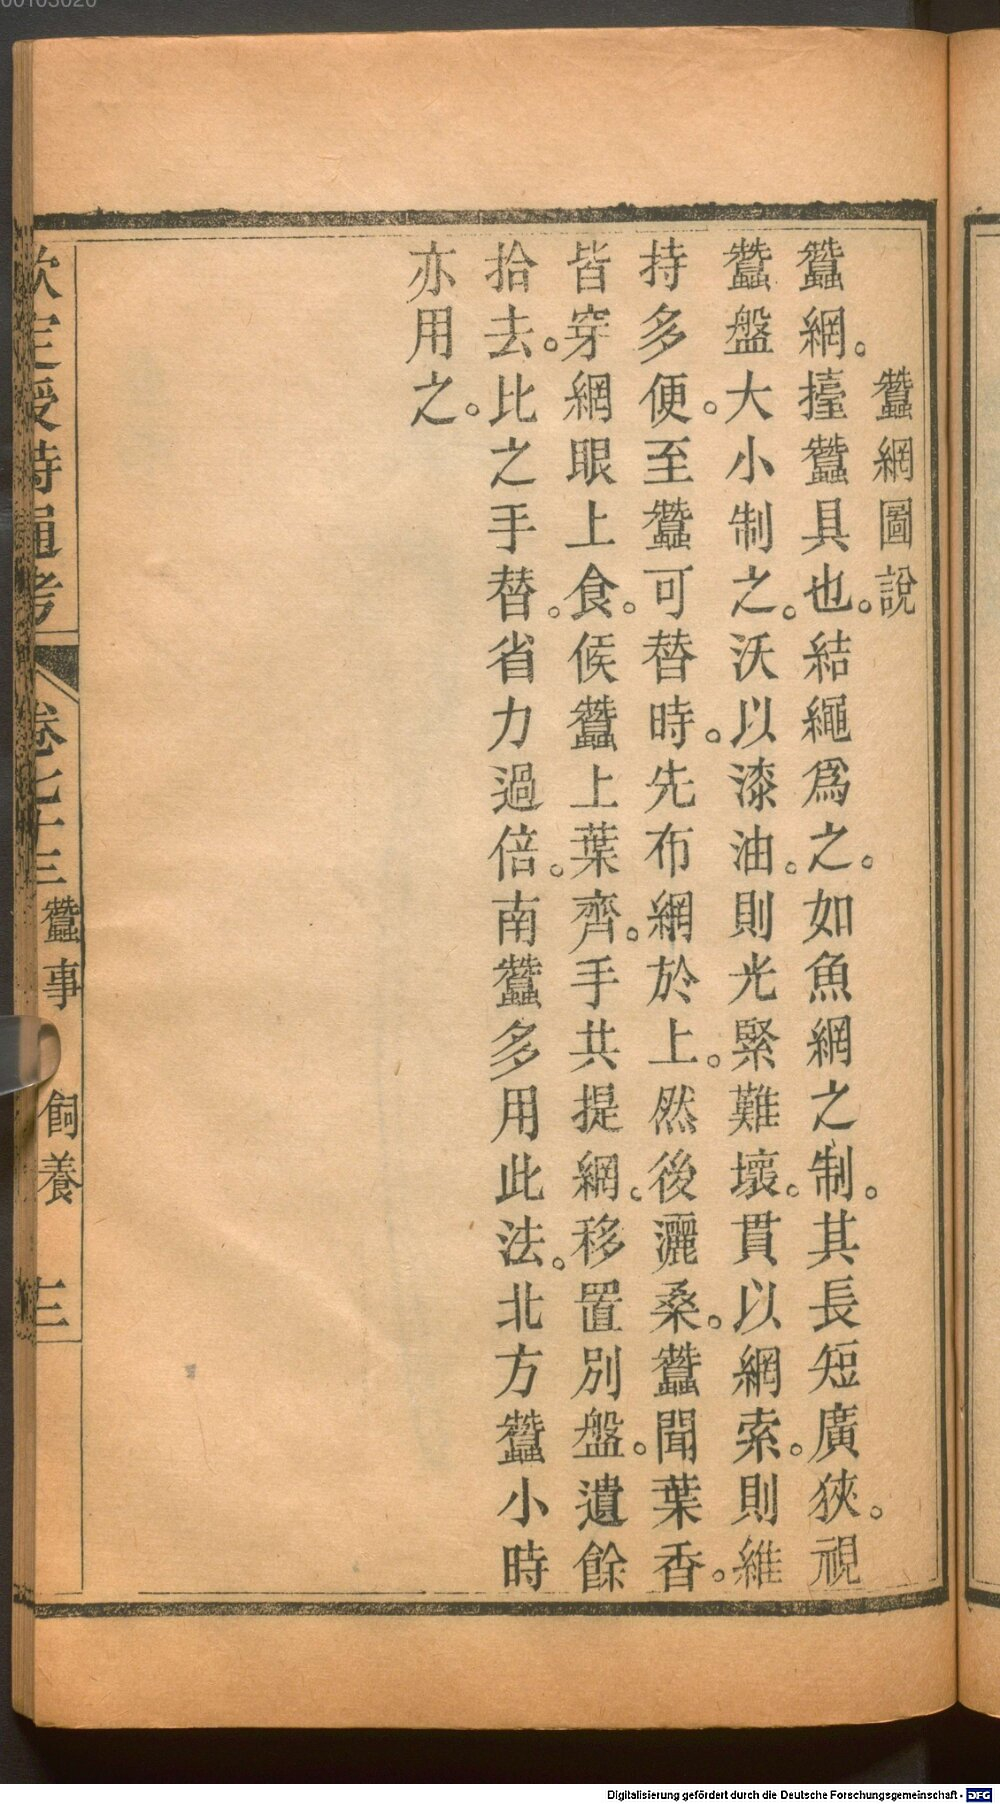 蠶網圖說
蠶網。擡蠶具也。結繩爲之。如魚網之制。其長短廣狹。視
蠶盤大小制之。沃以漆油。則光緊難壞。貫以網索。則維
持多便。至蠶可替時。先布網於上。然後灑桑。蠶聞葉香。
皆穿網眼上食。候蠶上葉齊。手共提網。移置別盤。遺餘
拾去。比之手替。省力過倍。南蠶多用此法。北方蠶小時
亦用之。
欽定授時通考
卷七十三 蠶事 飼養 三
00103020
Digitalisierung gefördert durch die Deutsche Forschungsgemeinschaft - DFG